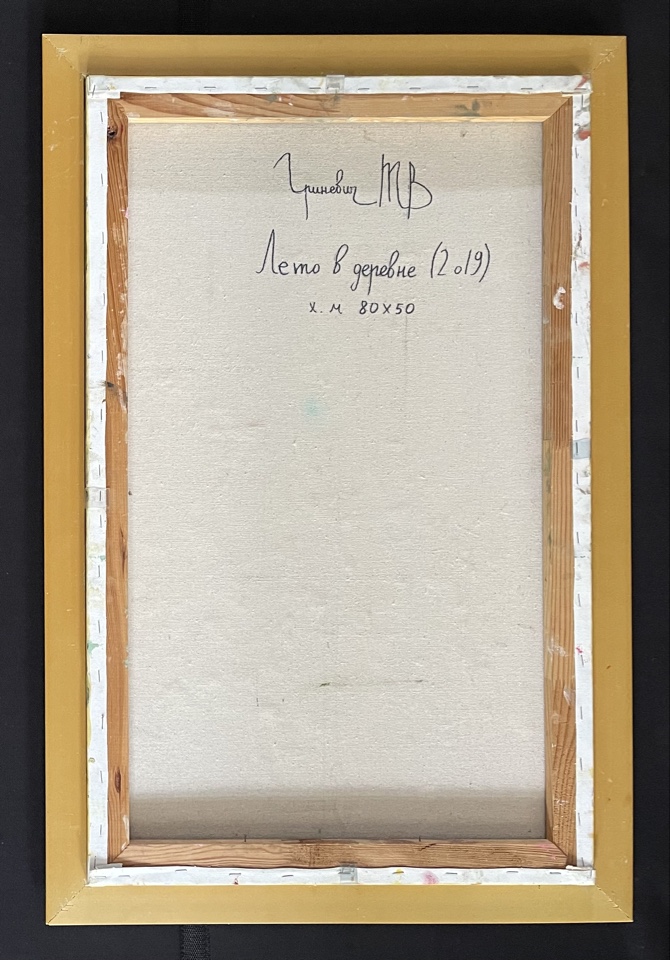 Гриневич ТВ
Лето в деревне (2019)
х. м 80х50